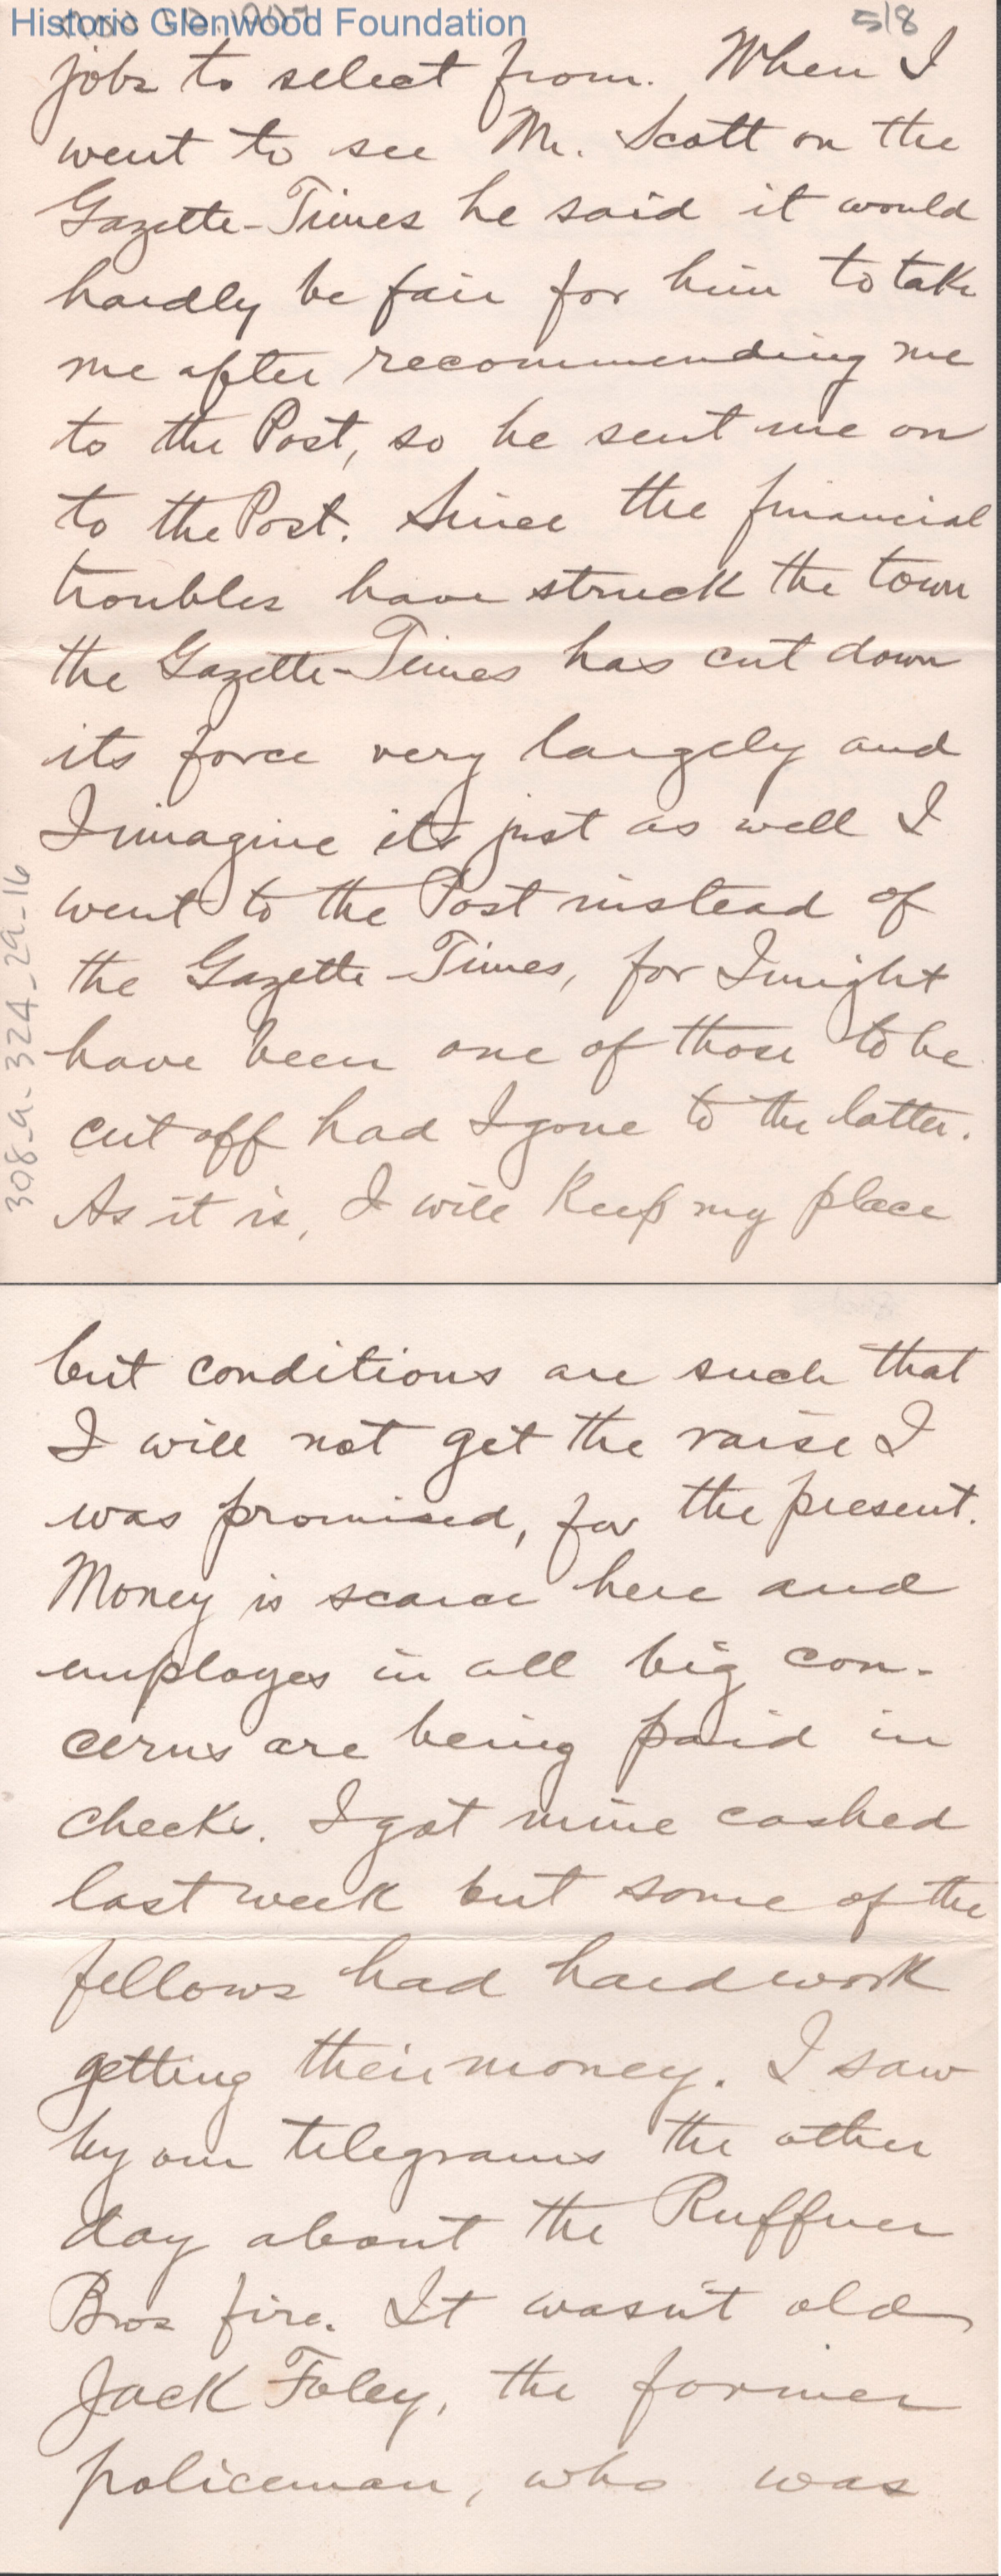 Historic Glenwood Foundation
5/8
jobs to select from. When I
went to see Mr. Scott on the
Gazette-Times he said it would
hardly be fair for him to take
me after recommending me
to the Post, so he sent me on
to the Post. Since the financial
troubles have struck the town
the Gazette-Times has cut down
its force very largely and
I imagine its just as well I
went to the Post instead of
the Gazette-Times, for I might
have been one of those to be
cut off had I gone to the latter.
As it is, I will keep my place
308-a-324-29-16
but conditions are such that
I will not get the raise I
was promised, for the present.
Money is scarce here and
employes in all big con-
cerns are being paid in
checks. I got mine cashed
last week but some of the
fellows had hard work
getting their money. I saw
by our telegrams the other
day about the Ruffner
Bros fire. It wasn't old
Jack Foley, the former
policeman, who was